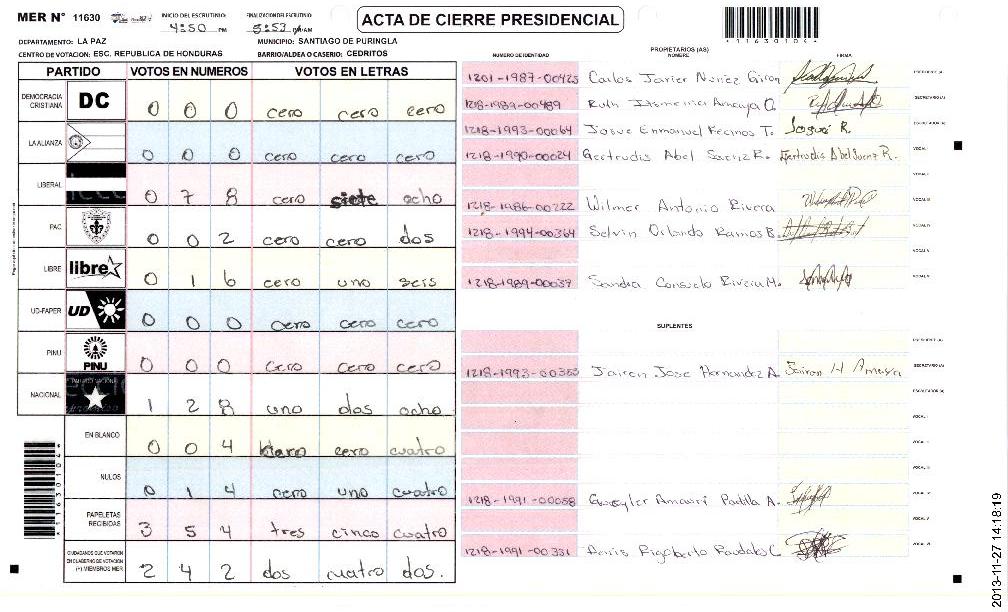 MER N° 11630
INICIO DEL ESCRUTINIO: 4:50 PM
FINALIZACION DEL ESCRUTINIO 5:53
ACTA DE CIERRE PRESIDENCIAL
*11630104*
DEPARTAMENTO: LA PAZ
MUNICIPIO: SANTIAGO DE PURINGLA
CENTRO DE VOTACION: ESC. REPUBLICA DE HONDURAS
BARRIO/ALDEA O CASERIO: CEDRITOS
PARTIDO VOTOS EN NUMEROS VOTOS EN LETRAS
DEMOCRACIA CRISTIANA DC 0 0 0 cero cero cero
LA ALIANZA 0 0 0 cero cero cero
LIBERAL 0 7 8 cero siete ocho
PAC 0 0 2 cero cero dos
LIBRE libre 0 1 6 cero uno seis
UD-FAPER UD 0 0 0 cero cero cero
PINU PINU 0 0 0 cero cero cero
NACIONAL 1 2 8 uno dos ocho
EN BLANCO 0 0 4 cero cuatro
NULOS 0 1 4 cero uno cuatro
PAPELETAS RECIBIDAS 3 5 4 tres cinco cuatro
CIUDADANOS QUE VOTARON EN CUADERNO DE VOTACION (+) MIEMBROS MER 2 4 2 dos cuatro dos.
*11630104*
PROPIETARIOS (AS)
NUMERO DE IDENTIDAD NOMBRE FIRMA
1201-1987-00425 Carlos Javier Nuñez Giron PRESIDENTE (A)
1218-1989-00489 Ruth Amaya O. SECRETARIO (A)
1218-1993-00064 Josue Enmanuel Recinos T. Josué R. ESCRUTADOR (A)
1218-1990-00024 Gertrudis Abel Saenz R. Gertrudis Abel Saenz R. VOCAL I
VOCAL II
1218-1986-00222 Wilmer Antonio Rivera VOCAL III
1218-1994-00364 Selvin Orlando Ramos B. VOCAL IV
VOCAL V
1218-1989-00037 Sandra Consuelo Rivera M. VOCAL VI
SUPLENTES
PRESIDENTE (A)
1218-1993-00353 Jairon Jose Hernandez A. Jairon H Amaya SECRETARIO (A)
ESCRUTADOR (A)
VOCAL I
VOCAL II
VOCAL III
1218-1991-00058 Amauri Padilla A. VOCAL IV
VOCAL V
1218-1991-00331 Rigoberto VOCAL VI
2013-11-27 14:18:19